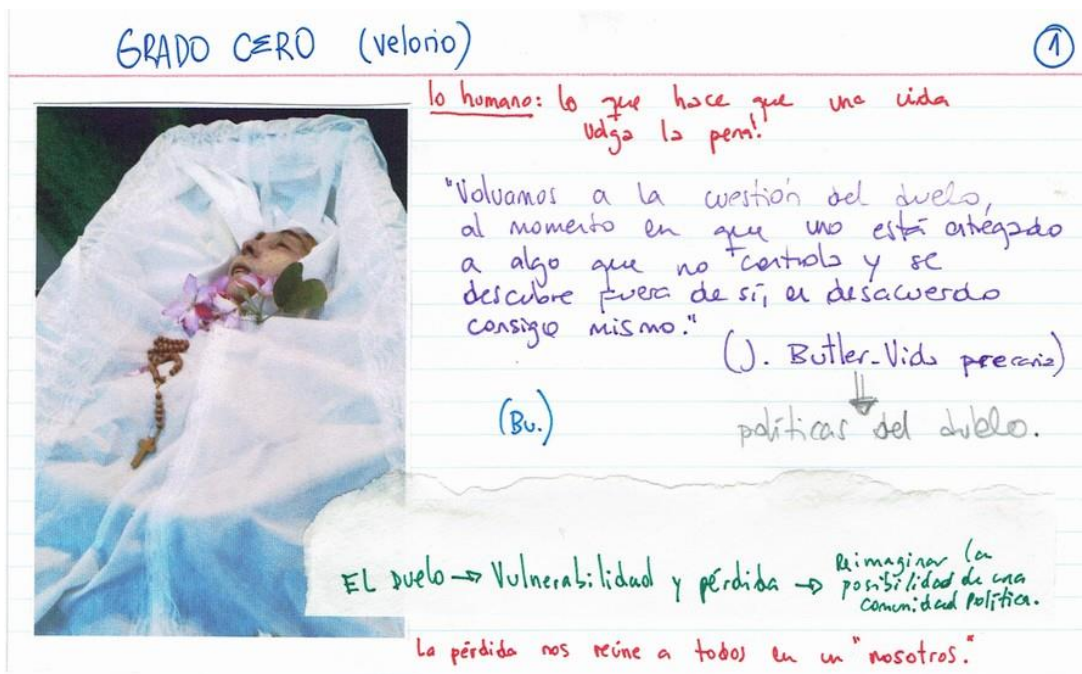 GRADO CERO (velorio)
1
lo humano: lo que hace que una vida
valga la pena!
"Volvamos a la cuestión del duelo,
al momento en que uno está entregado
a algo que no controla y se
descubre fuera de sí, en desacuerdo
consigo mismo."
(J. Butler-Vida precaria)
(Bu.)
políticas del duelo.
EL Duelo → Vulnerabilidad y pérdida → Reimaginar la
posibilidad de una
comunidad política.
La pérdida nos reúne a todos en un "nosotros."